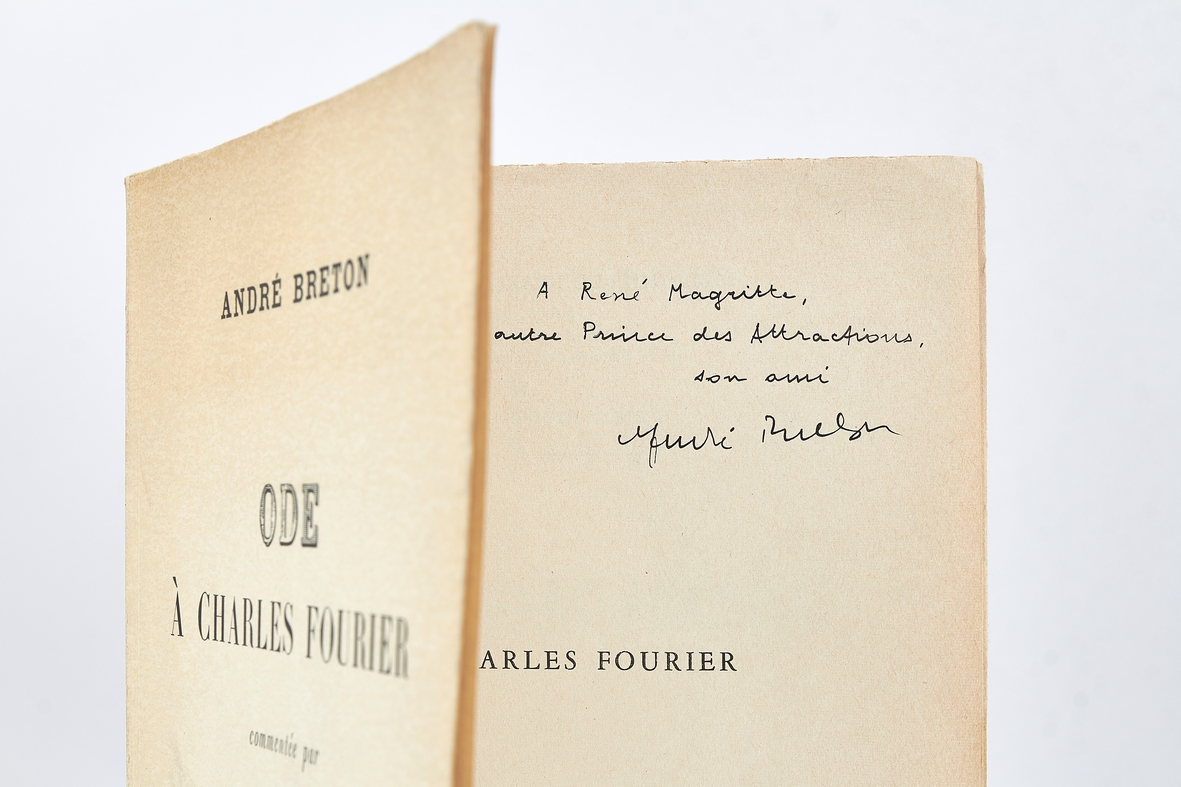 ANDRÉ BRETON
ODE
À CHARLES FOURIER
commentée par
A René Magritte,
autre Prince des Attractions,
son ami
André Breton
ARLES FOURIER